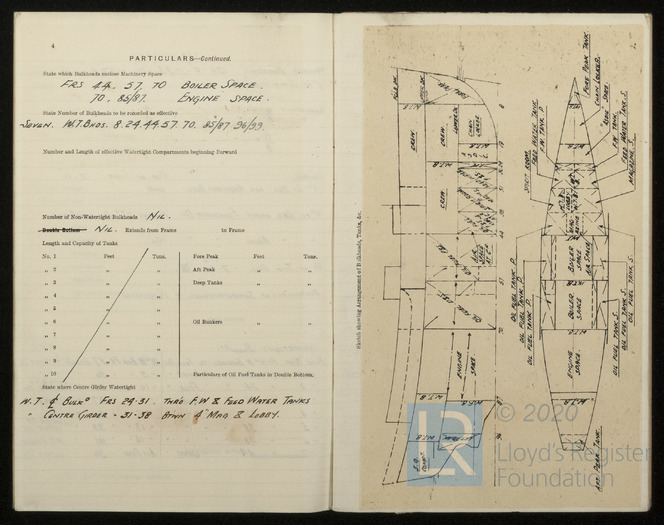 4
PARTICULARS—Continued.
State which Bulkheads enclose Machinery Space
FRS 44. 57. 70 BOILER SPACE.
70. 85/87. ENGINE SPACE.
State Number of Bulkheads to be recorded as effective
SEVEN. W.T. BHDS. 8. 24. 44. 57. 70. 85/87 96/99
Number and Length of effective Watertight Compartments beginning Forward
Number of Non-Watertight Bulkheads NIL.
Double Bottom NIL. Extends from Frame to Frame
Length and Capacity of Tanks
No. 1 Feet Tons. Fore Peak Feet Tons.
„ 2 Aft Peak „ „
„ 3 Deep Tanks „ „
„ 4
„ 5
„ 6 Oil Bunkers „ „
„ 7
„ 8
„ 9
„ 10 Particulars of Oil Fuel Tanks in Double Bottom.
State where Centre Girder Watertight
W.T. ₵ BULKD FRS 24-31. THRO F.W & FEED WATER TANKS
" CENTRE GIRDER - 31-38 BTWN 4" MAG & LOBBY.
Sketch showing Arrangement of Bulkheads, Tanks, &c.
CREW
CREW
CREW
W.T.B
ENGINE SPACE
W.T.B
FORE PEAK TANK
CHAIN LOCKER
F.W. TANK
FEED WATER TANK S.
MAGAZINE S.
SPIRIT ROOM
FEED WATER TANK
F.W. TANK P.
BOILER SPACE
AIR SPACE
W.T.B
BOILER SPACE
W.T.B
ENGINE SPACE
OIL FUEL TANK P.
OIL FUEL TANK P.
OIL FUEL TANK P.
OIL FUEL TANK S.
OIL FUEL TANK S.
OIL FUEL TANK S.
AFT PEAK TANK
LR
© 2020
Lloyd's Register
Foundation